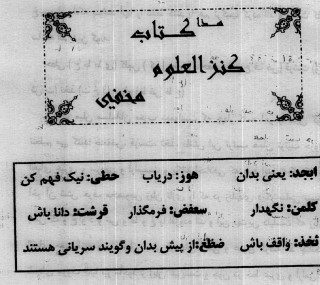 هذا کتاب
کنز العلوم
مخفی
ابجد: یعنی بدان هوز: دریاب حطی: نیک فهم کن
کلمن: نگهدار سعفص: فرمگذار قرشت: دانا باش
ثخذ: واقف باش ضظغ: از پیش بدان وگویند سریانی هستند